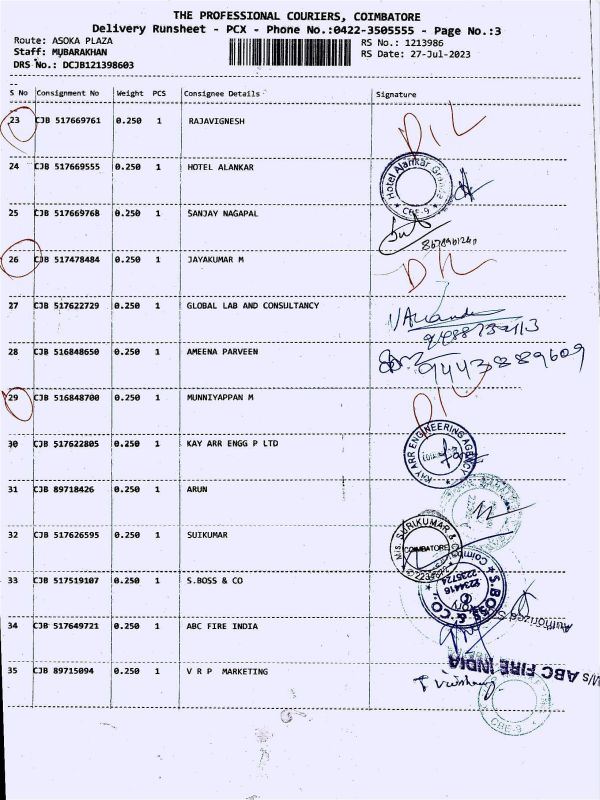 THE PROFESSIONAL COURIERS, COIMBATORE
Delivery Runsheet - PCX - Phone No.:0422-3505555 - Page No.:3
Route: ASOKA PLAZA
RS No.: 1213986
Staff: MUBARAKHAN
RS Date: 27-Jul-2023
DRS No.: DCJB121398603
S No Consignment No Weight PCS Consignee Details Signature
23 CJB 517669761 0.250 1 RAJAVIGNESH
24 CJB 517669555 0.250 1 HOTEL ALANKAR
Hotel Alankar
CBE-9
25 CJB 517669768 0.250 1 SANJAY NAGAPAL
26 CJB 517478484 0.250 1 JAYAKUMAR M
27 CJB 517622729 0.250 1 GLOBAL LAB AND CONSULTANCY
28 CJB 516848650 0.250 1 AMEENA PARVEEN
9443889609
29 CJB 516848700 0.250 1 MUNNIYAPPAN M
30 CJB 517622805 0.250 1 KAY ARR ENGG P LTD
KAY ARR ENGINEERING AGENCY
31 CJB 89718426 0.250 1 ARUN
32 CJB 517626595 0.250 1 SUIKUMAR
M/s. SURIKUMAR & CO
COIMBATORE
33 CJB 517519107 0.250 1 S.BOSS & CO
S.BOSS & CO.
Coimbatore
2234416
2235724
34 CJB 517649721 0.250 1 ABC FIRE INDIA
M/s ABC FIRE INDIA
Authorized
35 CJB 89715094 0.250 1 V R P MARKETING
CBE-9